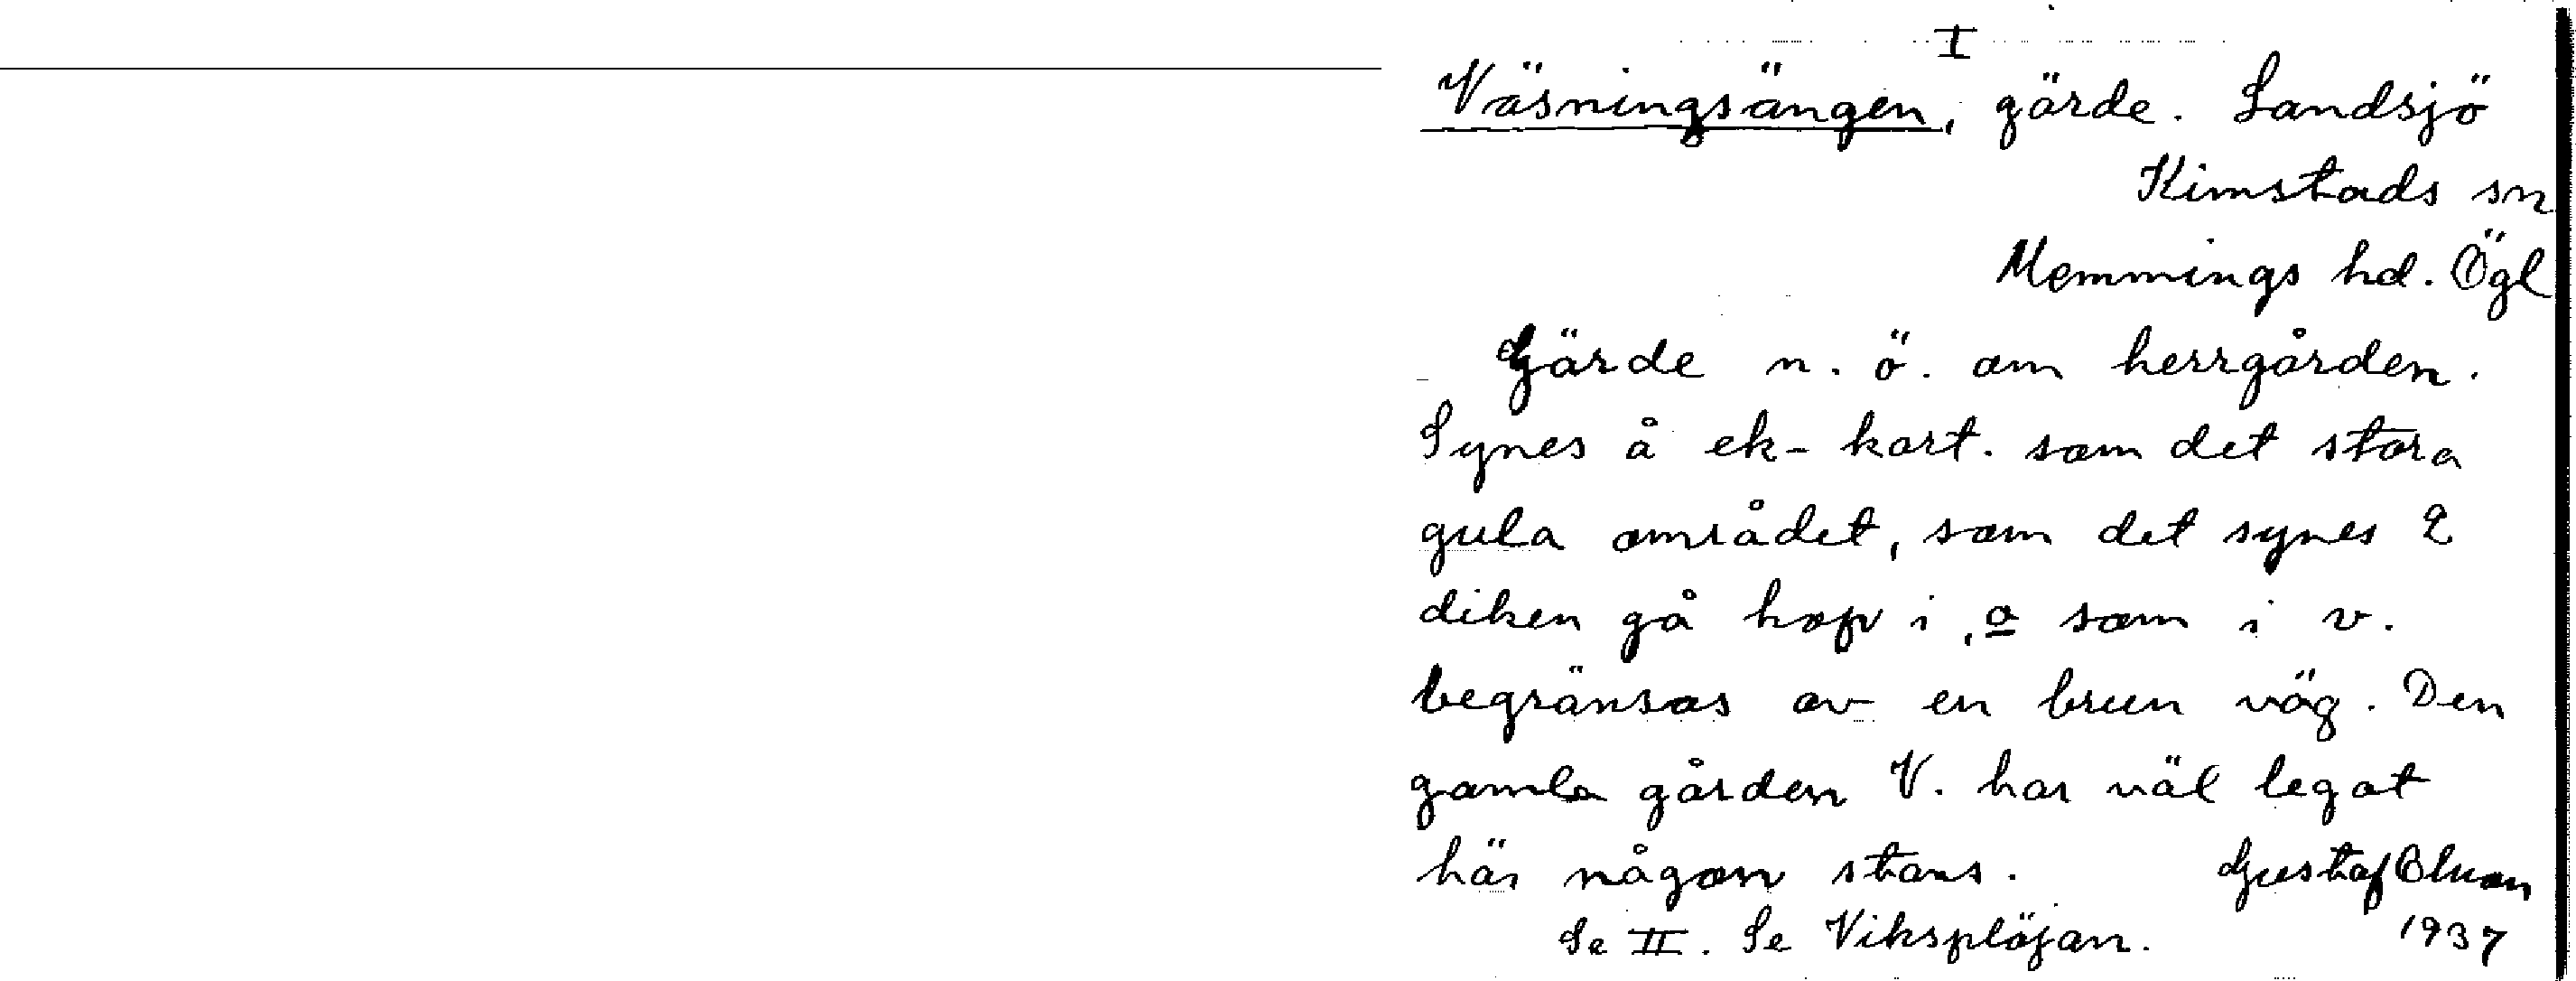 I
Väsningsängen, gärde. Landsjö
Kimstads sn
Memmings hd. Ögl
Gärde n. ö. om herrgården.
Synes å ek-kart. som det stora
gula området, som det synes 2
diken gå hop i, o som i v.
begränsas av en brun väg. Den
gamla gården V. har väl legat
här någon stans. Gustaf
Se II. Se Viksplöjan. 1937